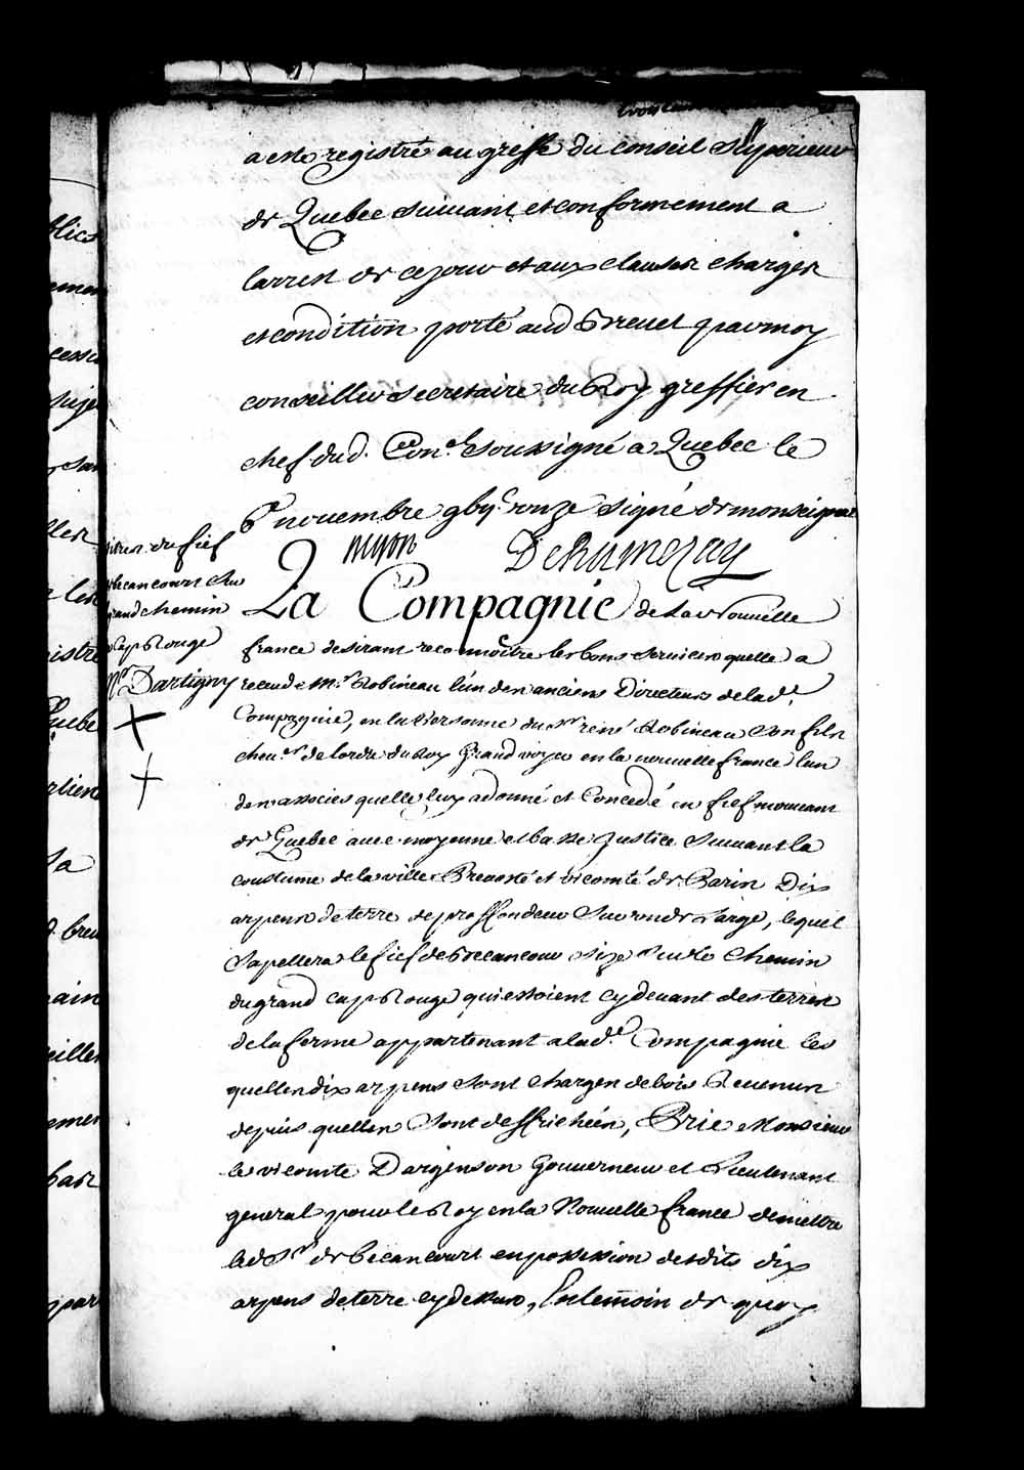 a esté registré au greffe du conseil Superieur
de Quebec suivant et conformement a
larrest de ce jour et aux clauses charges
et condition porté aud Brevet par moy
conseiller secretaire du Roy greffier en
chef dud. Con.el soussigné a Quebec le
6e novembre gbij.c onze signé de monseignat
Titres du fief
Becancourt sur
grand chemin
Cap Rouge
Mr Dartigny
La Compagnie de La Nouvelle
france desirant reconnoitre les bons services quelle a
receu de Mr Robineau lun des anciens Directeurs de lad.e
Compagnie, en la Personne du Sr rené Robineau son fils
chev.er de lordre du Roy Grand voyer en la nouvelle france lun
des associes quelle luy a donné et Concedé en fief mouvant
de Quebec avec moyenne et basse Justice suivant la
coustume de la ville Prevosté et vicomté de Paris Dix
arpens de terre de proffondeur Sur un de Large, lequel
Sapellera le fief de Becancour size Sur le Chemin
du grand cap Rouge qui estoient cy devant des terres
de la ferme appartenant a lad.e Compagnie les
quelles dix arpens sont charges de bois Revenus
depuis quelles sont deffrichées, Prie Monsieur
le vicomte Dargenson Gouverneur et Lieutenant
general pour le Roy en la Nouvelle france de mettre
led Sr de becancourt en possession desdits dix
arpens de terre cy dessus, En temoin de quoy